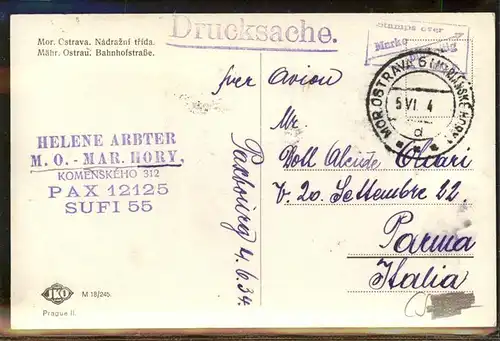 Drucksache.
Mor. Ostrava. Nádražní třída.
Mähr. Ostrau. Bahnhofstraße.
Stamps over
Marke
MOR. OSTRAVA 6 (MARIÁNSKÉ HORY)
5 VI. 4
d
per Avion
HELENE ARBTER
M. O. - MAR. HORY,
KOMENSKÉHO 312
PAX 12125
SUFI 55
4.6.34
Mr.
Dott Alcide
V. 20. Settembre 22.
Parma
Italia
JKO
M 18/245.
Prague II.